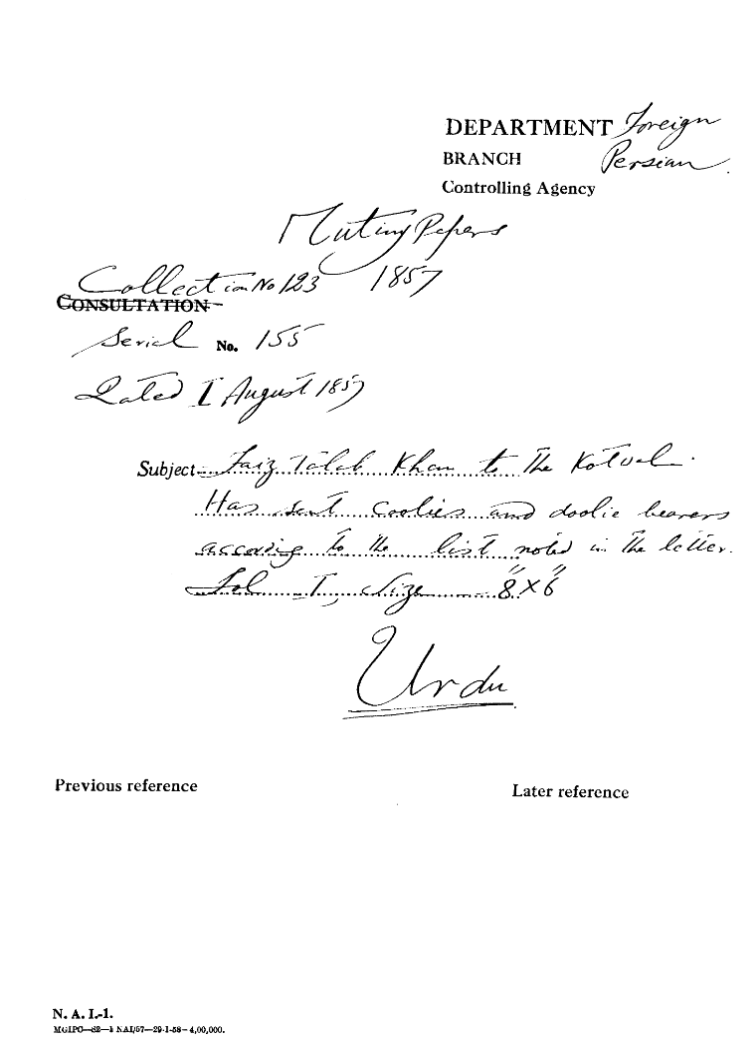 DEPARTMENT Foreign
BRANCH Persian.
Controlling Agency
Mutiny Papers
Collection No 123 1857
CONSULTATION
Serial No. 155
Dated I August 1857
Subject Faiz Talab Khan to the Kotwal.
Has sent coolies and doolie bearers
accoring to the list noted in the letter.
Fol I, Size 8" X 6"
Urdu
Previous reference Later reference
N. A. I.-1.
MGIPC—S2—1 NAI/57—29-1-58—4,00,000.